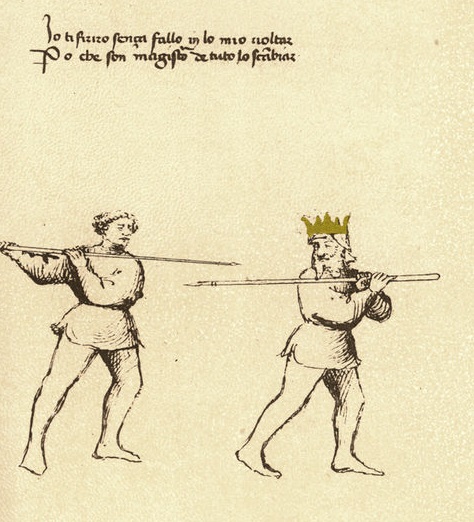 Io ti firiro sença fallo in lo mio uoltar
Po che son magistro de tuto lo